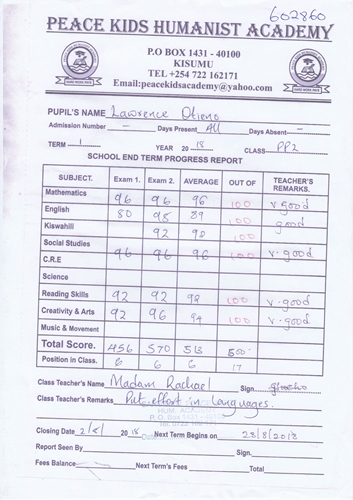 602860
PEACE KIDS HUMANIST ACADEMY
P.O BOX 1431 - 40100
KISUMU
TEL +254 722 162171
Email:peacekidsacademy@yahoo.com
PUPIL'S NAME Lawrence Otieno
Admission Number - Days Present All Days Absent -
TERM 1 YEAR 2018 CLASS PP2
SCHOOL END TERM PROGRESS REPORT
SUBJECT. Exam 1. Exam 2. AVERAGE OUT OF TEACHER'S REMARKS.
Mathematics 96 96 96 100 v.good
English 80 98 89 100 good
Kiswahili 92 92 100
Social Studies
C.R.E 96 96 96 100 v.good
Science
Reading Skills 92 92 92 100 v.good
Creativity & Arts 92 96 94 100 v.good
Music & Movement
Total Score. 456 570 513 500
Position in Class. 6 6 6 17
Class Teacher's Name Madam Rachael Sign.
Class Teacher's Remarks Put effort in languages.
Closing Date 2018 Next Term Begins on 28/8/2018
Report Seen By Sign.
Fees Balance Next Term's Fees Total